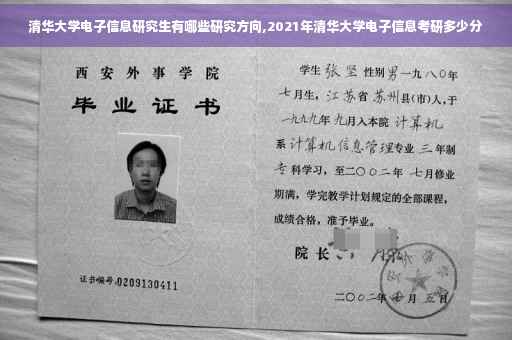 清华大学电子信息研究生有哪些研究方向,2021年清华大学电子信息考研多少分
西安外事学院
毕业证书
证书编号:0209130411
学生 张坚 性别男 一九八〇年
七月生，江苏省 苏州县(市)人，于
一九九九年 九月入本院 计算机
系 计算机信息管理专业 三 年制
专 科学习，至二〇〇二年 七月修业
期满，学完教学计划规定的全部课程，
成绩合格，准予毕业。
院长
二〇〇二年 七 月 五 日